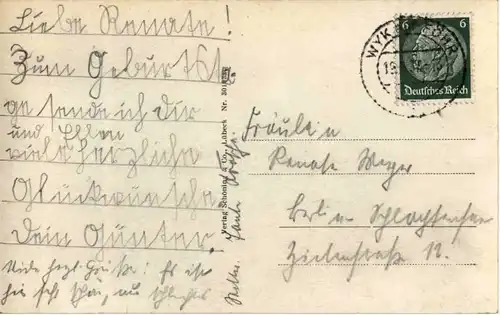 Liebe Renate!
Zum Geburtst
ge sende ich dir
und Ellen
viele herzliche
Glückwünsche
Dein Günter.
Viele herzl. Grüße! Es ist
hier sehr schön, nur schlechtes
Wetter.
Verlag Schöning & Co., Lübeck Nr. 301
WYK FÖHR
6 6
Deutsches Reich
Fräulein
Renate Weger
Berlin Schlachtensee
Zietenstraße 12.